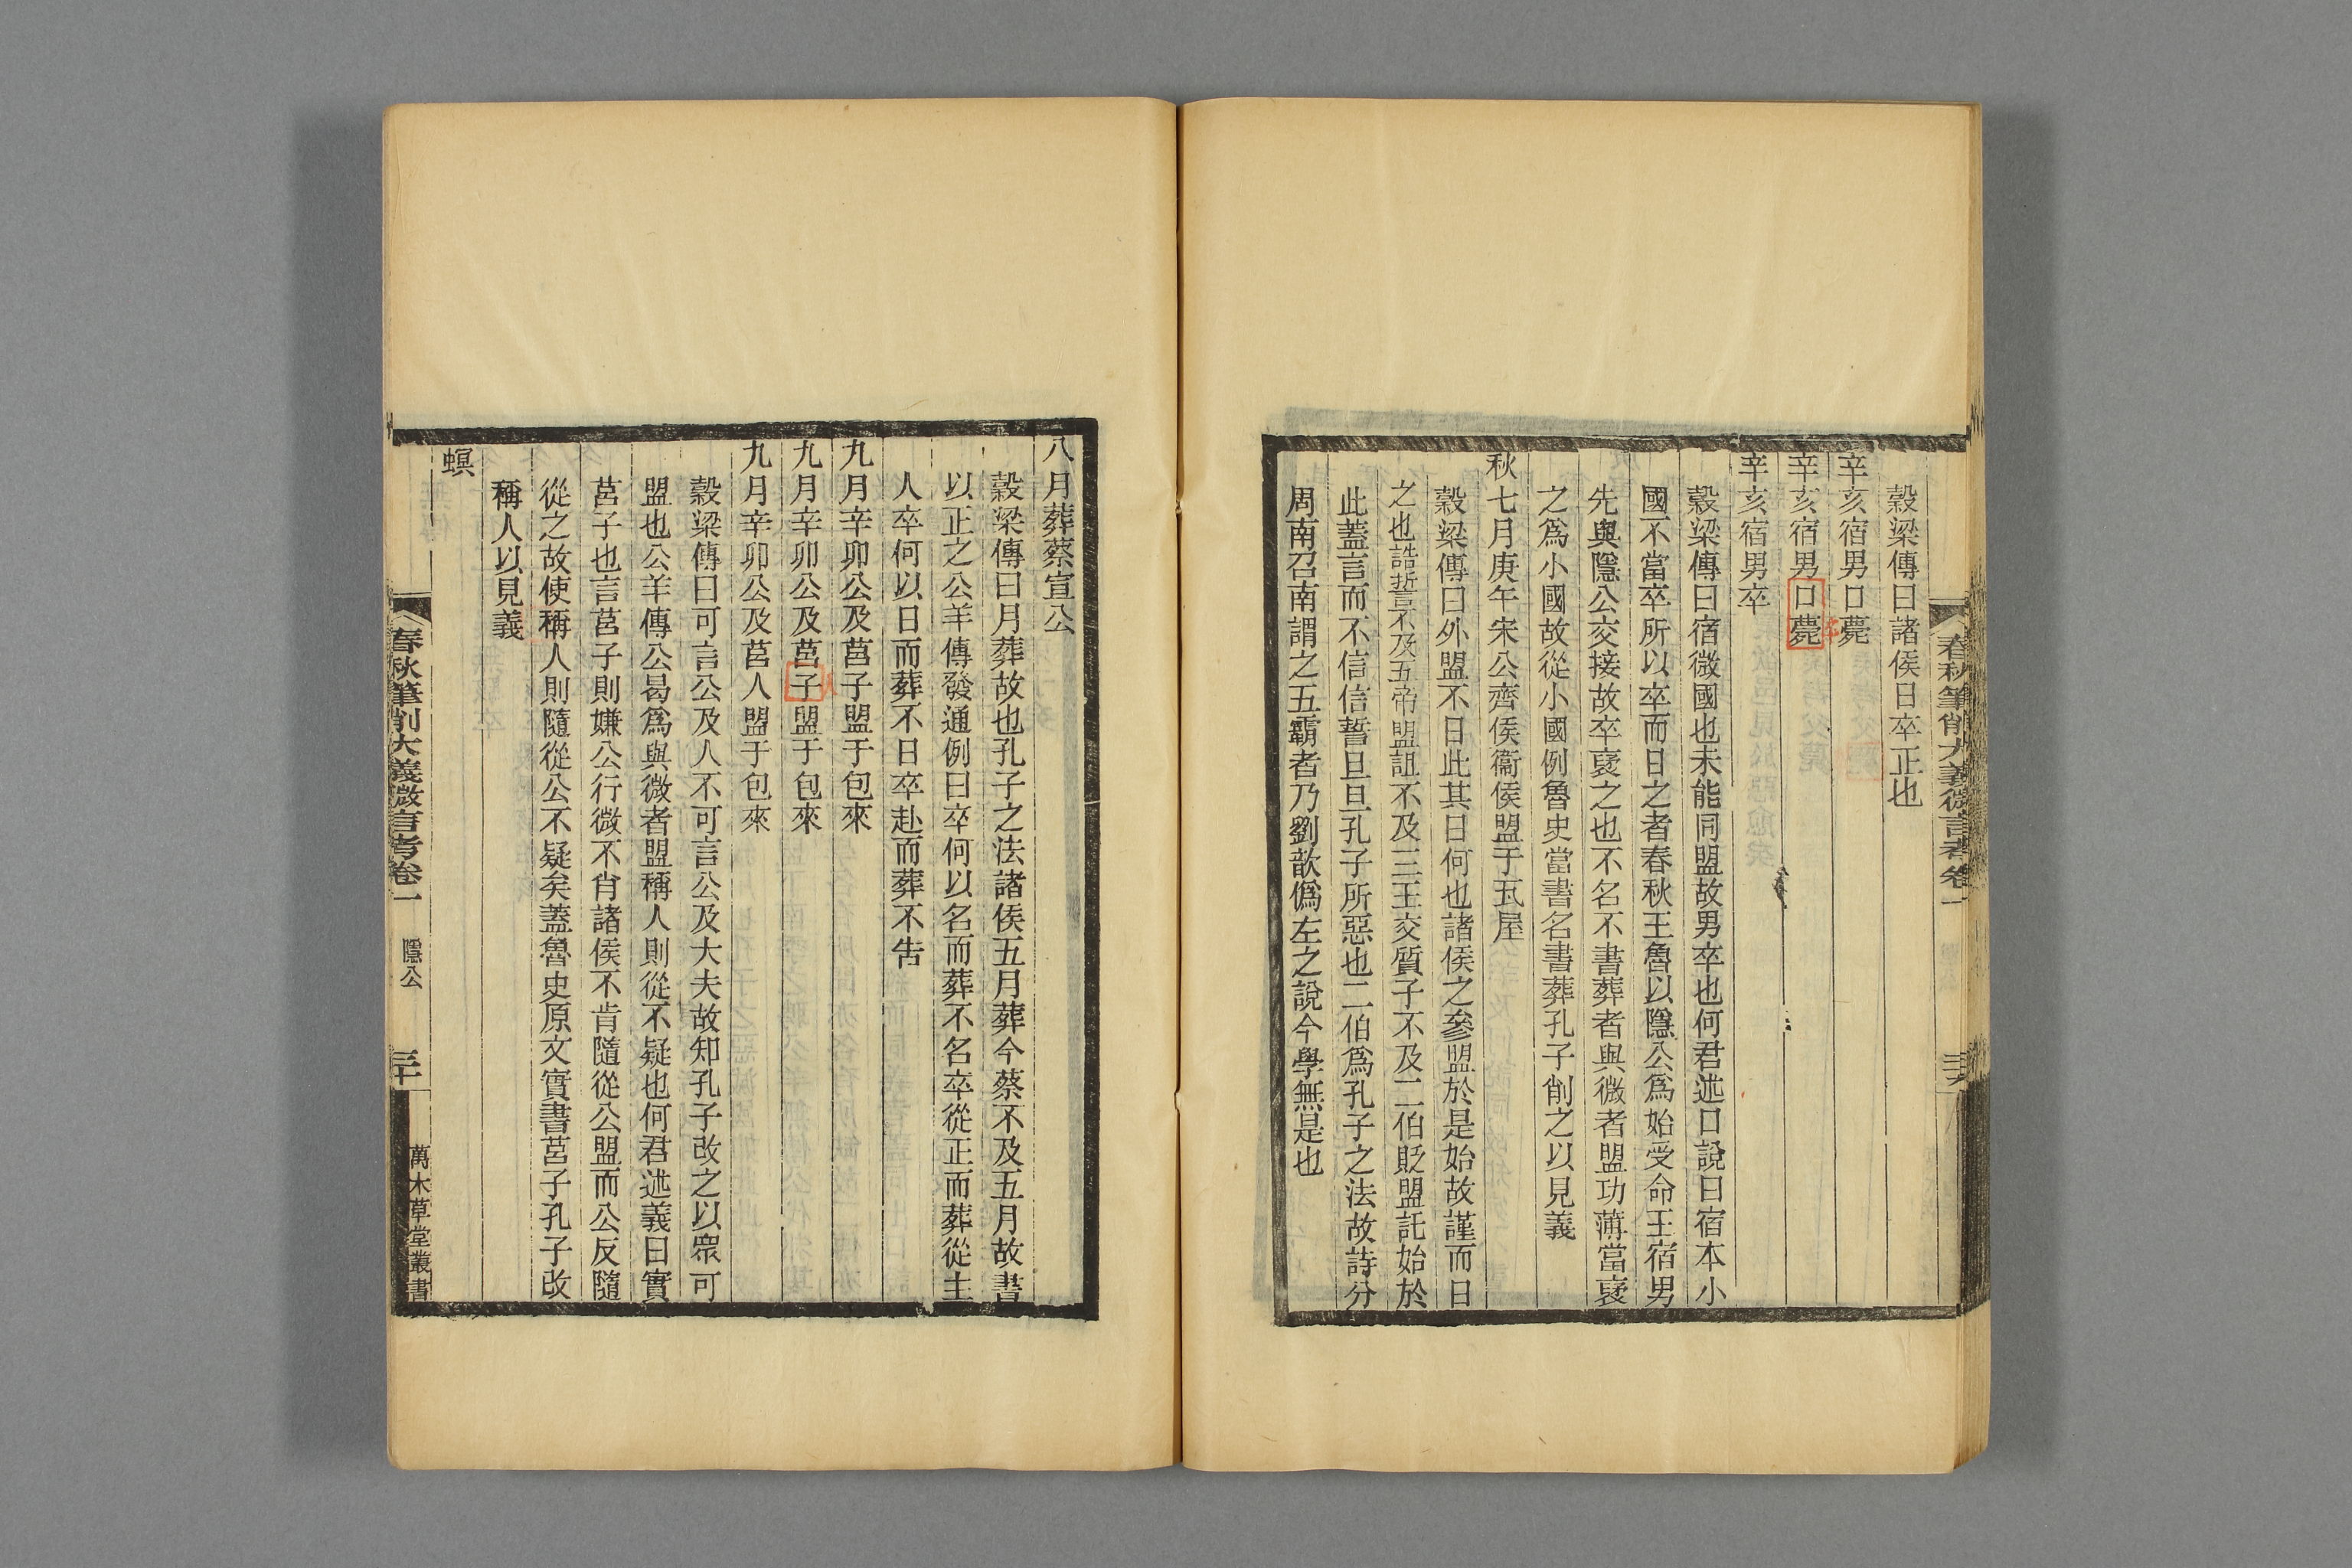 春秋筆削大義微言考卷一
穀梁傳曰諸侯日卒正也
辛亥宿男口薨
辛亥宿男口薨
卒
辛亥宿男卒
穀梁傳曰宿微國也未能同盟故男卒也何君述口說曰宿本小
國不當卒所以卒而日之者春秋王魯以隱公爲始受命王宿男
先與隱公交接故卒襃之也不名不書葬者與微者盟功薄當襃
之爲小國故從小國例魯史當書名書葬孔子削之以見義
秋七月庚午宋公齊侯衞侯盟于瓦屋
穀梁傳曰外盟不日此其日何也諸侯之參盟於是始故謹而日
之也誥誓不及五帝盟詛不及三王交質子不及二伯貶盟託始於
此蓋言而不信信誓旦旦孔子所惡也二伯爲孔子之法故詩分
周南召南謂之五霸者乃劉歆僞左之說今學無是也
八月葬蔡宣公
穀梁傳曰月葬故也孔子之法諸侯五月葬今蔡不及五月故書
以正之公羊傳發通例曰卒何以名而葬不名卒從正而葬從主
人卒何以日而葬不日卒赴而葬不告
九月辛卯公及莒子盟于包來
九月辛卯公及莒子盟于包來
人
九月辛卯公及莒人盟于包來
穀梁傳曰可言公及人不可言公及大夫故知孔子改之以眾可
盟也公羊傳公曷爲與微者盟稱人則從不疑也何君述義曰實
莒子也言莒子則嫌公行微不肖諸侯不肯隨從公盟而公反隨
從之故使稱人則隨從公不疑矣蓋魯史原文實書莒子孔子改
稱人以見義
螟
春秋筆削大義微言考卷一
隱公
三十
萬木草堂叢書